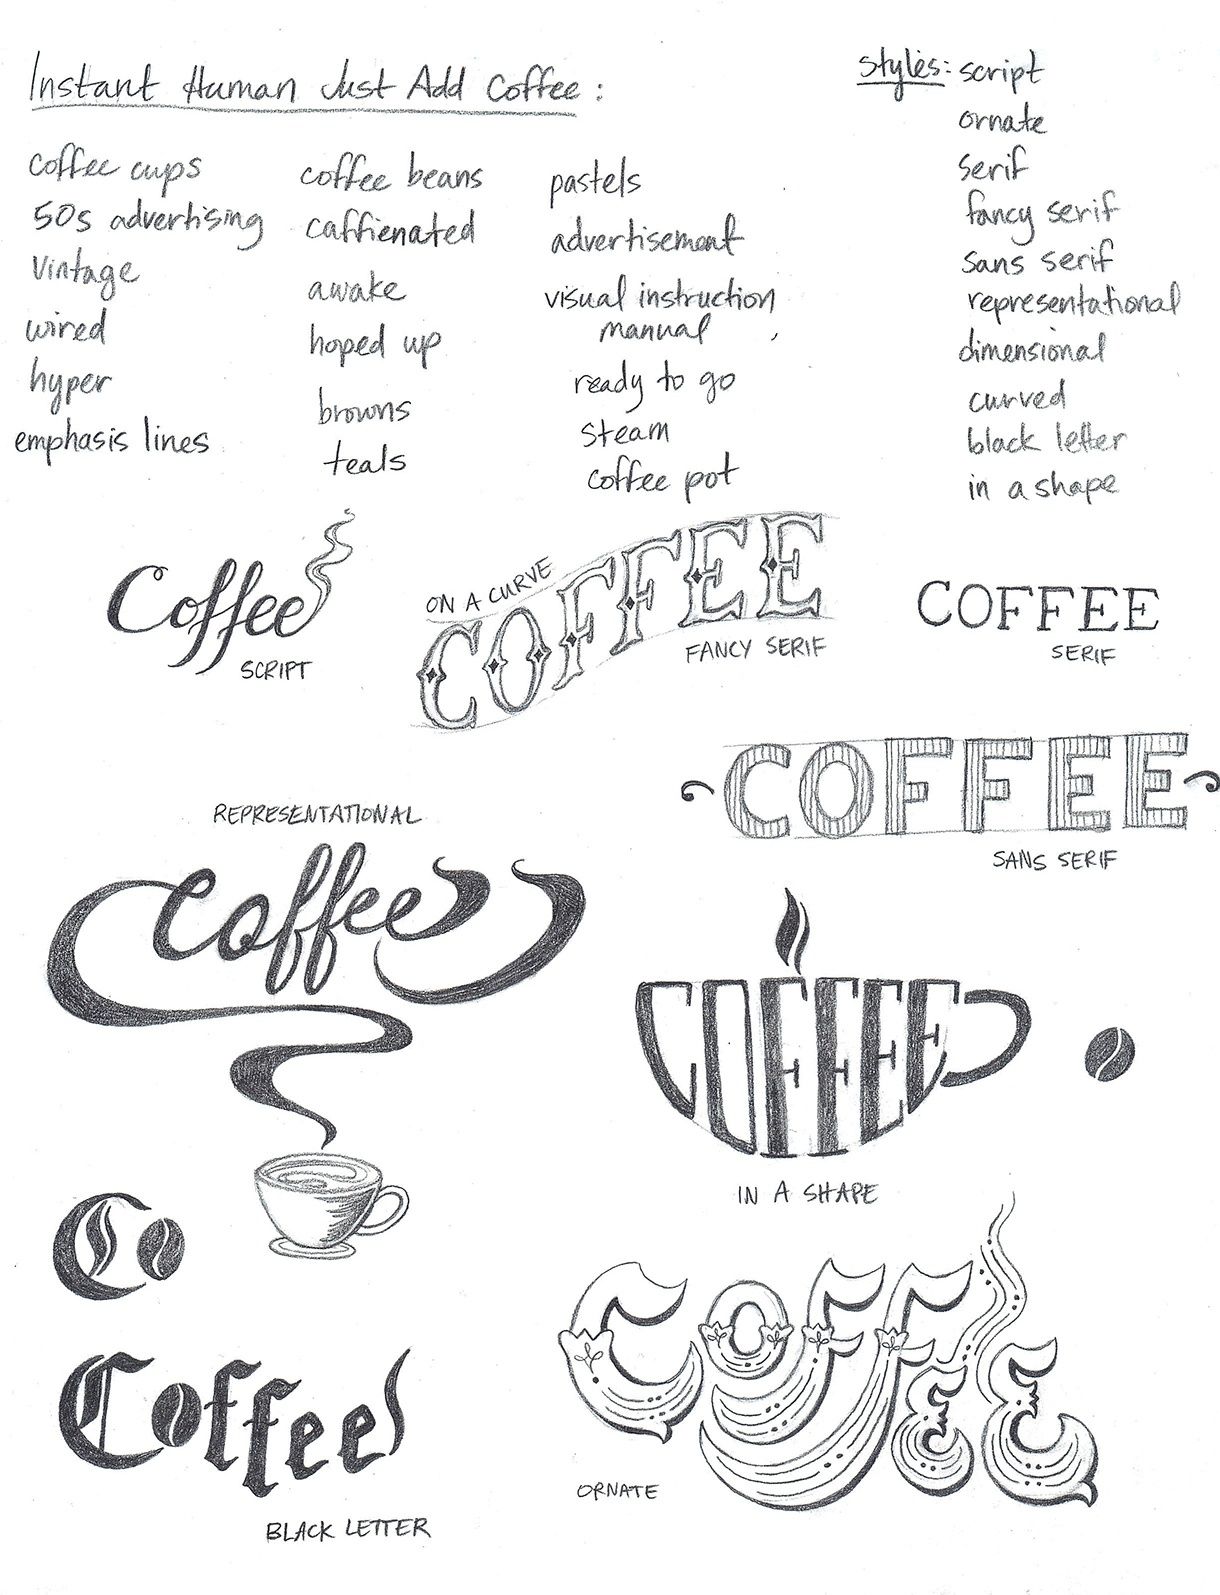 Instant Human Just Add Coffee:
coffee cups
50s advertising
vintage
wired
hyper
emphasis lines
coffee beans
caffienated
awake
hoped up
browns
teals
pastels
advertisement
visual instruction
manual
ready to go
steam
coffee pot
styles: script
ornate
serif
fancy serif
sans serif
representational
dimensional
curved
black letter
in a shape
Coffee
SCRIPT
ON A CURVE
COFFEE
FANCY SERIF
COFFEE
SERIF
COFFEE
SANS SERIF
REPRESENTATIONAL
Coffee
COFFEE
IN A SHAPE
Co
Coffee
BLACK LETTER
COFFEE
ORNATE